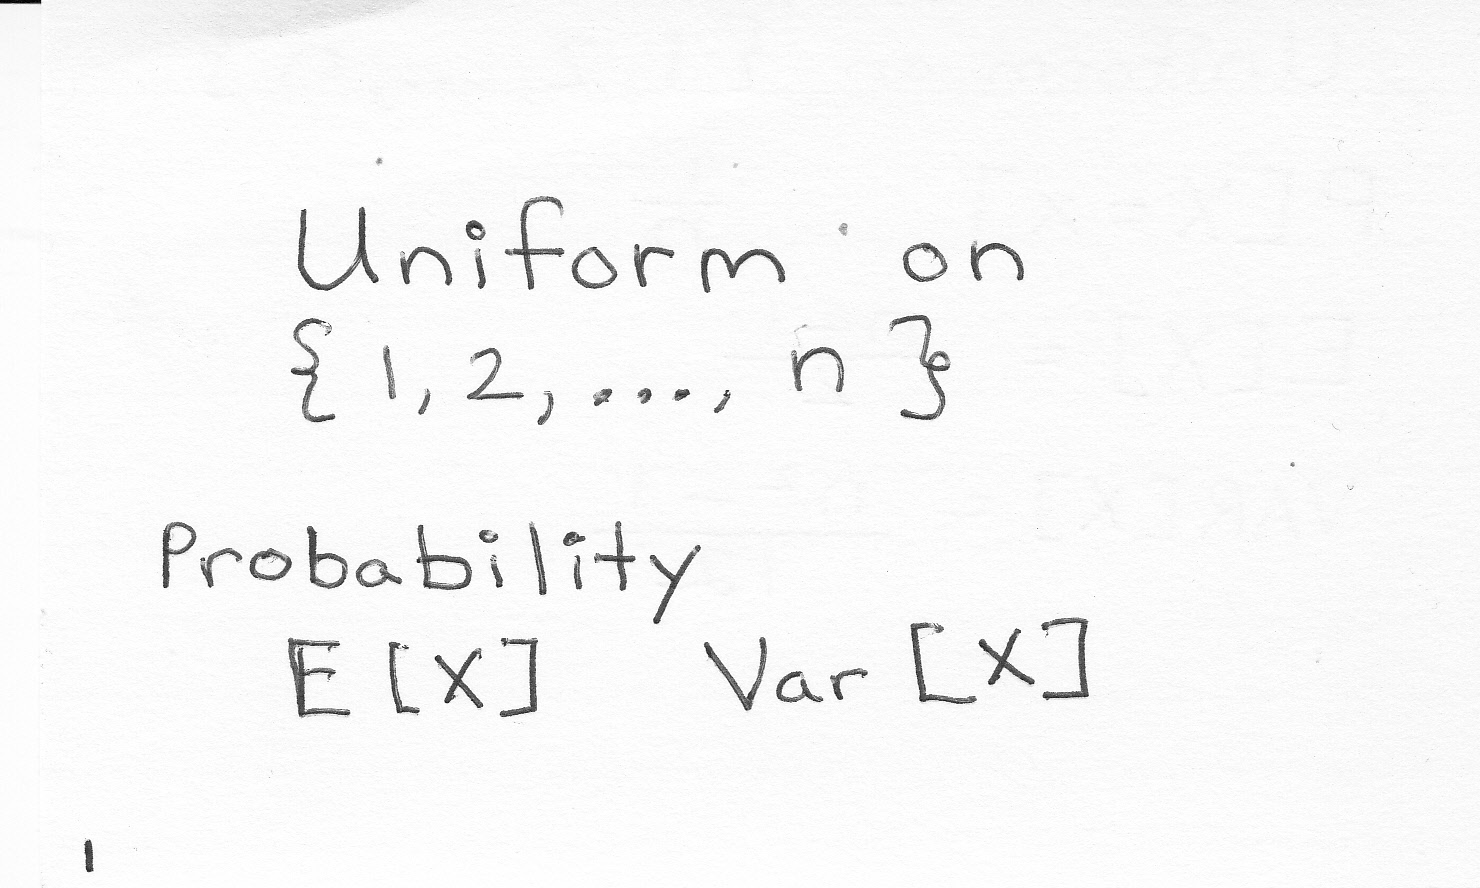 Uniform on
{1, 2, ...., n}
Probability
E[X] Var[X]
1